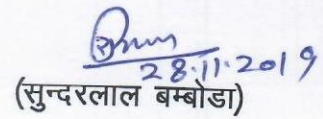 28.11.2019
(सुन्दरलाल बम्बोडा)